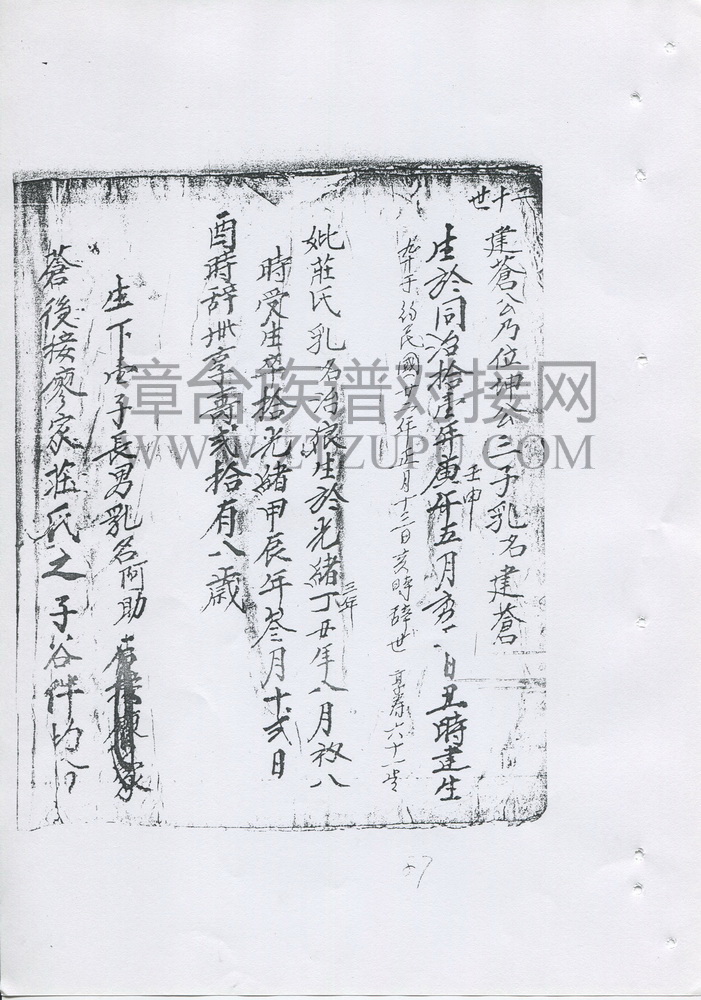 二十世
建蒼公乃位坤公二子乳名建蒼
生於同治拾壹年庚午五月初八日丑時建生
壬申
卒于民國廿一年正月十三日亥時辭世 享壽六十一歲
妣莊氏乳名治娘生於光緒丁丑年八月初八
三年
時受生卒於光緒甲辰年叁月十弍日
酉時辭世享壽弍拾有八歲
生下壹子長男乳名阿助
蒼後接廖家莊氏之子谷件均分
漳台族谱对接网
WWW.ZTZUPU.COM
67